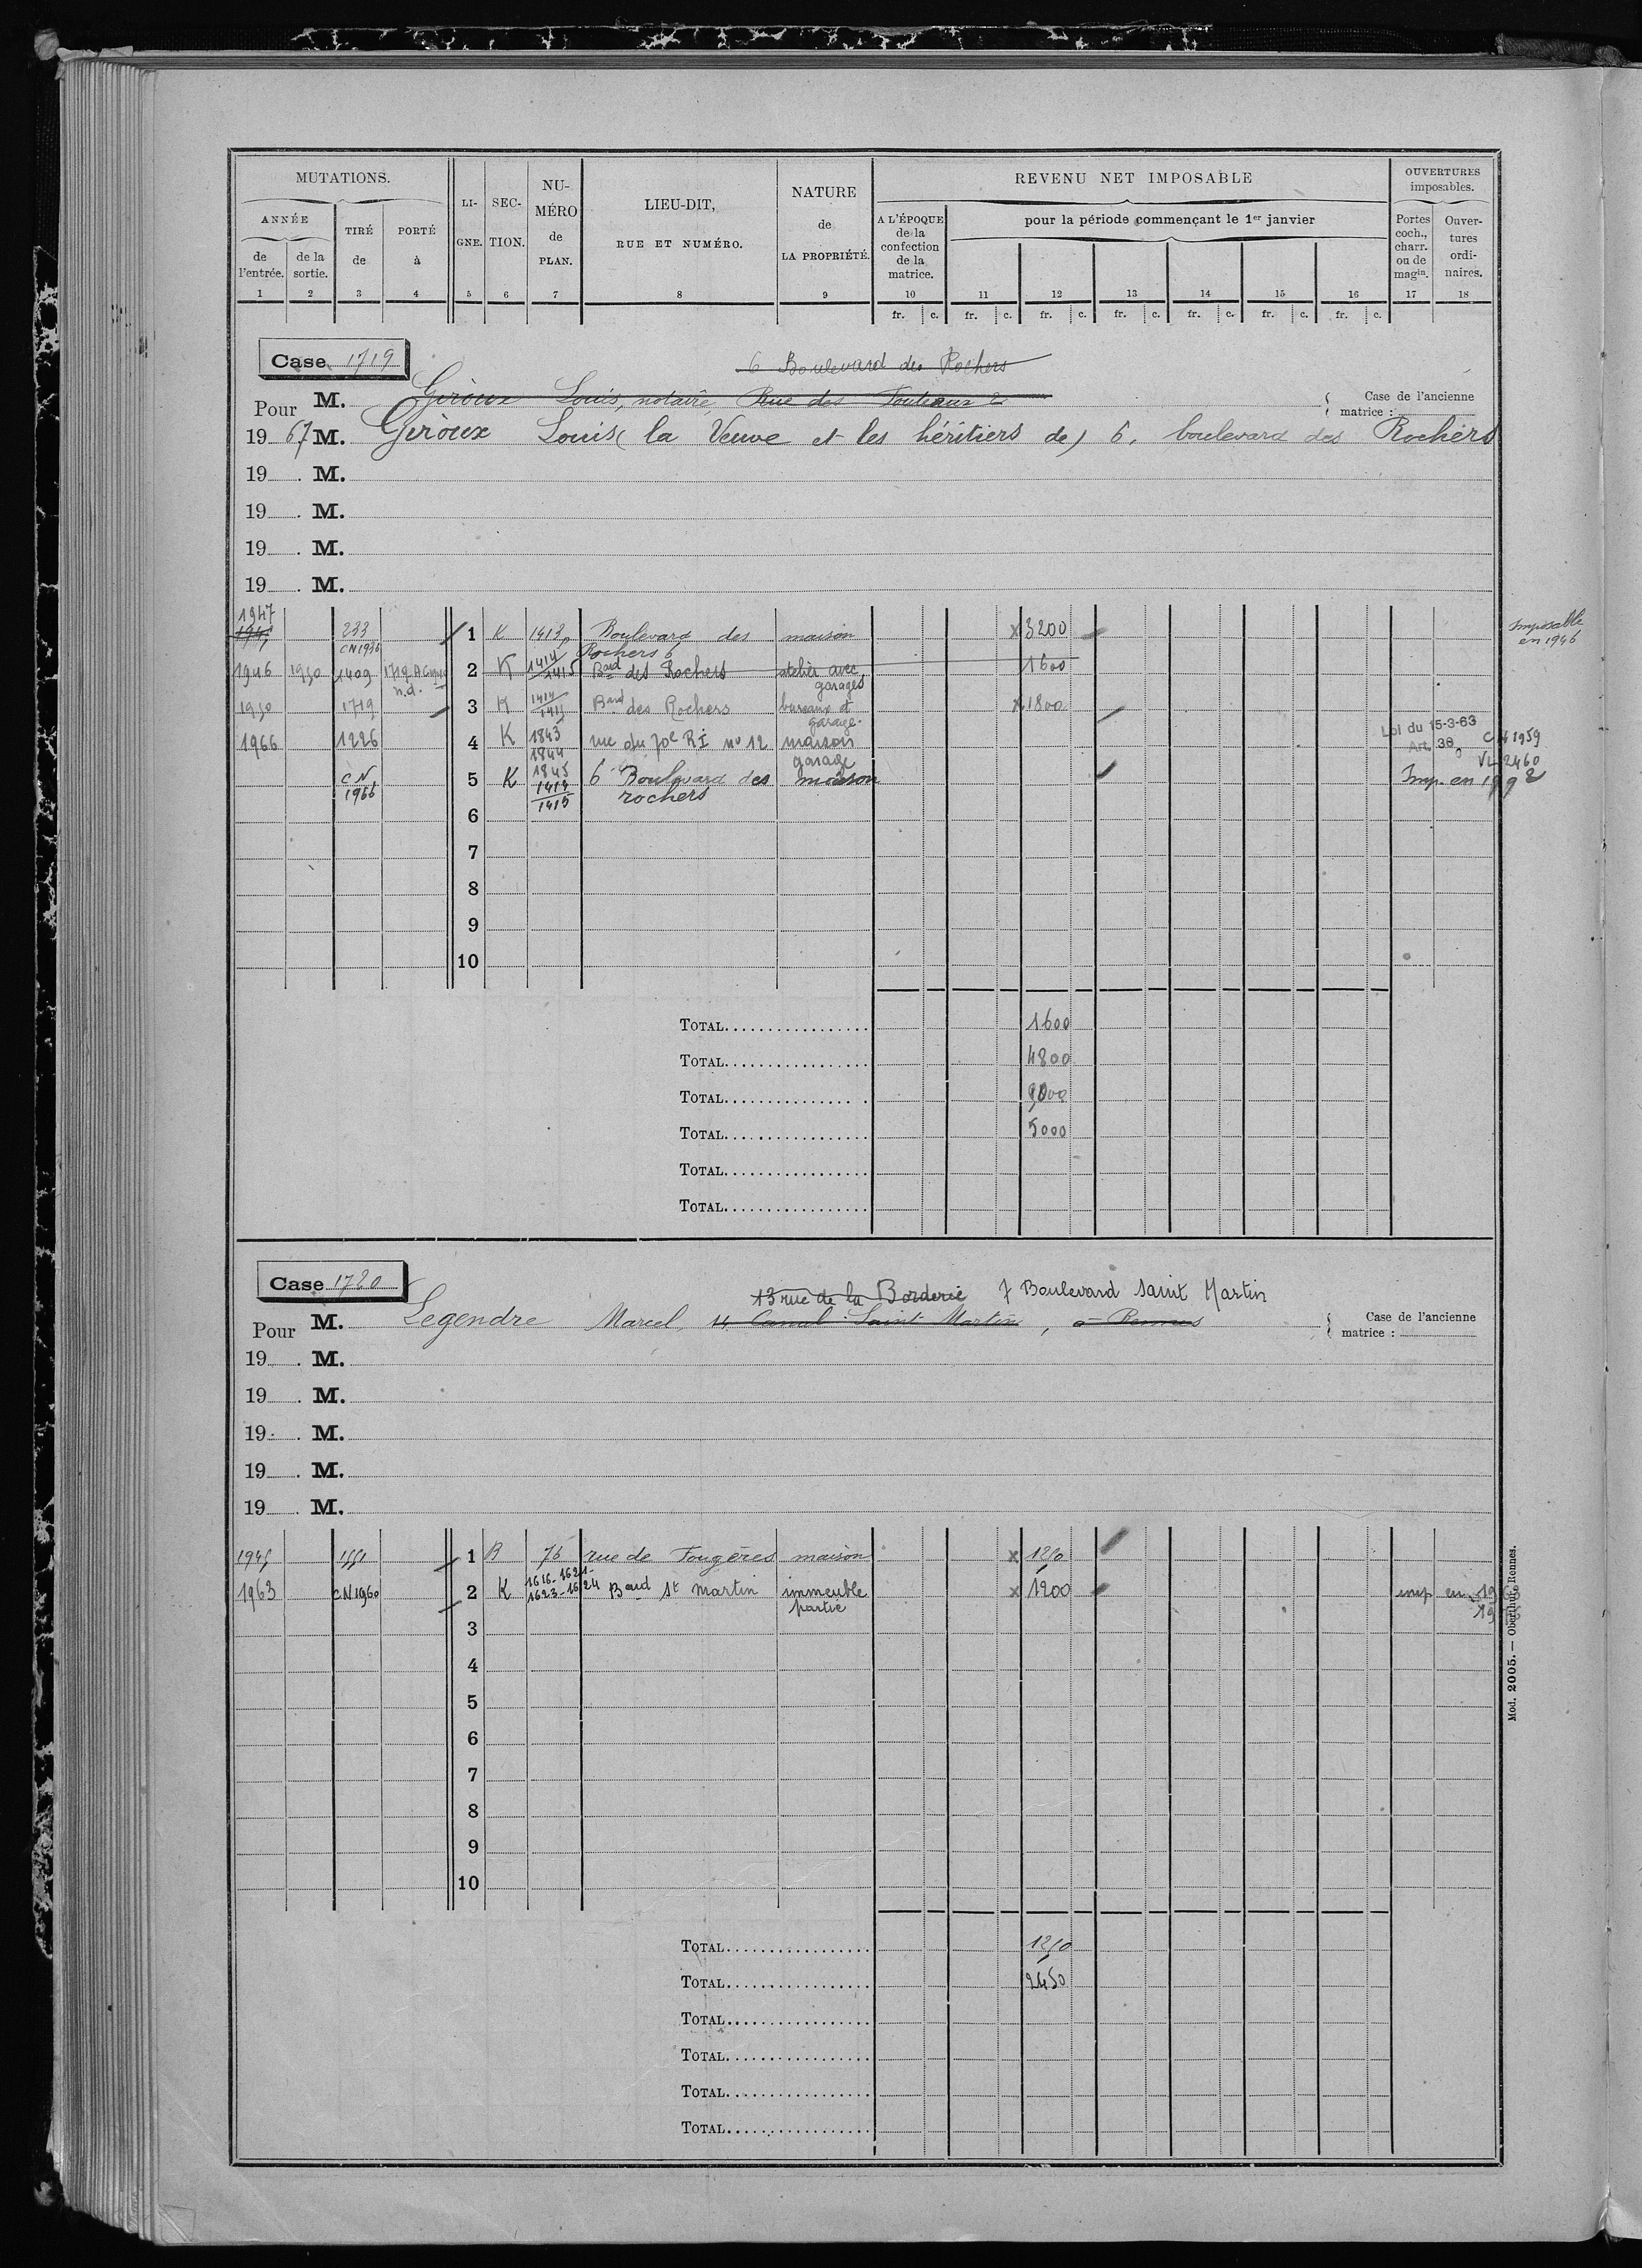 MUTATIONS.
ANNÉE
de l'entrée.
de la sortie.
TIRÉ de
PORTÉ à
LI-GNE.
SEC-TION.
NU-MÉRO de PLAN.
LIEU-DIT,
RUE ET NUMÉRO.
NATURE de LA PROPRIÉTÉ.
REVENU NET IMPOSABLE
A L'ÉPOQUE de la confection de la matrice.
pour la période commençant le 1er janvier
OUVERTURES imposables.
Portes coch., charr. ou de magin.
Ouver-tures ordi-naires.
1 2 3 4 5 6 7 8 9 10 11 12 13 14 15 16 17 18
fr. c. fr. c. fr. c. fr. c. fr. c. fr. c. fr. c.
Case 1719
6 Boulevard des Rochers
Pour M. Giroux Louis, notaire, Rue des 2
Case de l'ancienne matrice :
1967 M. Giroux Louis (la Veuve et les héritiers de) 6, boulevard des Rochers
19 . M.
19 . M.
19 . M.
19 . M.
1947
233 1 K 1413p Boulevard des maison x 3200 Imposable
CN 1936 Rochers 6 en 1946
1946 1950 1409 1719 2 K 1414 1415 Bard des Rochers atelier avec 1600
n.d. garages
1950 1719 3 K 1414 1415 Bard des Rochers bureaux et x 1800
garage.
1966 1226 4 K 1843 rue du 70e RI no 12 maison Loi du 15-3-63 1959
1844 garage Art. 38 VL 2460
CN 5 K 1845 6 Boulevard des maison Imp. en 1992
1966 1414 rochers
1415
6
7
8
9
10
TOTAL 1600
TOTAL 4800
TOTAL
TOTAL 5000
TOTAL
TOTAL
Case 1720
13 rue de la Borderie 7 Boulevard Saint Martin
Pour M. Legendre Marcel, 4, Canal Saint Martin, à Rennes
Case de l'ancienne matrice :
19 . M.
19 . M.
19 . M.
19 . M.
19 . M.
1945 1551 1 B 76 rue de Fougères maison x 1250
1963 CN 1960 2 K 1616-1621- Baud St Martin immeuble x 1200 imp en
1623-1624 partie
3
4
5
6
7
8
9
10
TOTAL 1250
TOTAL 2450
TOTAL
TOTAL
TOTAL
TOTAL
Mod. 2005. — Oberthur, Rennes.